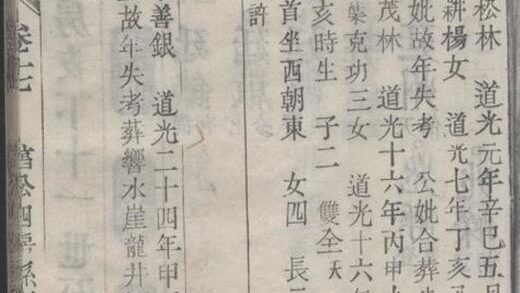 松林 道光元年辛巳五月
耕楊女 道光七年丁亥
妣故年失考 公妣合葬
茂林 道光十六年丙申
葉克功三女 道光十六年
亥時生 子二 雙全
首坐西朝東 女四 長
許
善銀 道光二十四年甲
故年失考葬響水崖龍井
卷七 萬公四房系